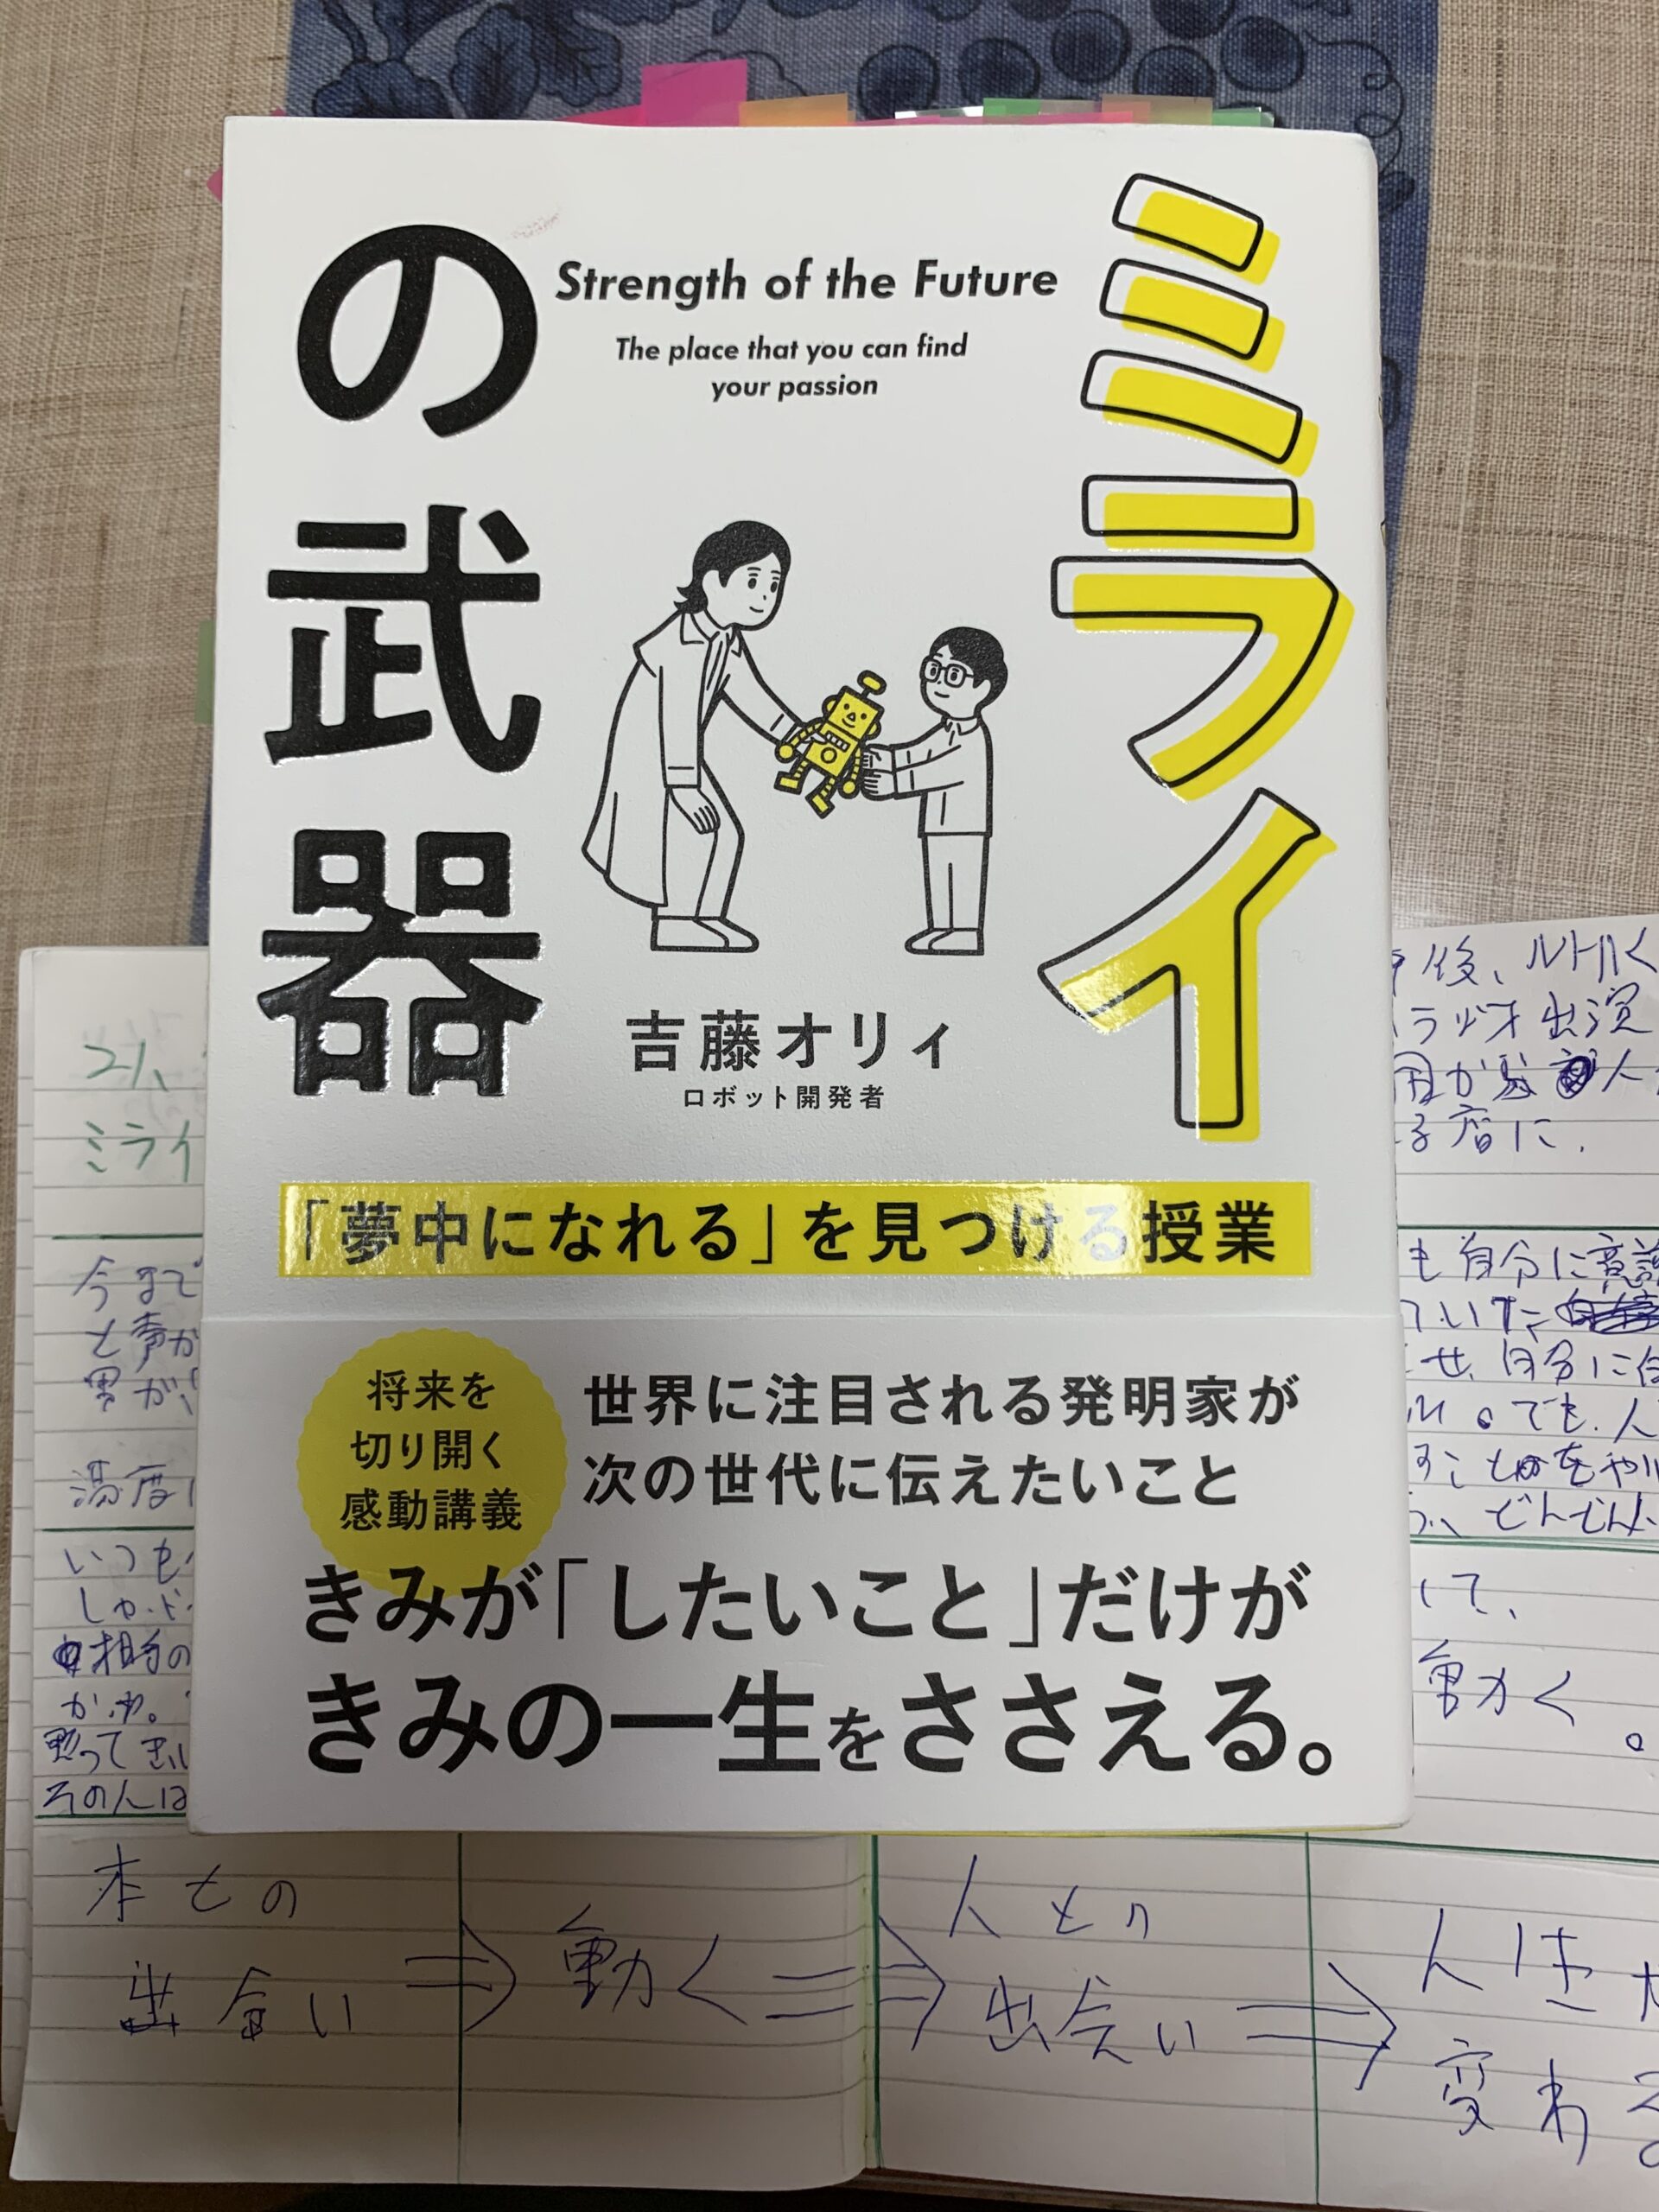 ミライ
の武器
Strength of the Future
The place that you can find
your passion
吉藤オリィ
ロボット開発者
「夢中になれる」を見つける授業
将来を
切り開く
感動講義
世界に注目される発明家が
次の世代に伝えたいこと
きみが「したいこと」だけが
きみの一生をささえる。
21、
ミライ
今まで
と声が
男が
温度
いつも
相手の
かや。
黙って
その人は
後、
ラジオ出演
人
る店に.
も自分に意識
ていた
せ、自分に
でも、人
すことをやり
どんどん
いて、
動く
。
本との
出会い
⇒
動く
⇒
人との
出会い
⇒
人生
変わる